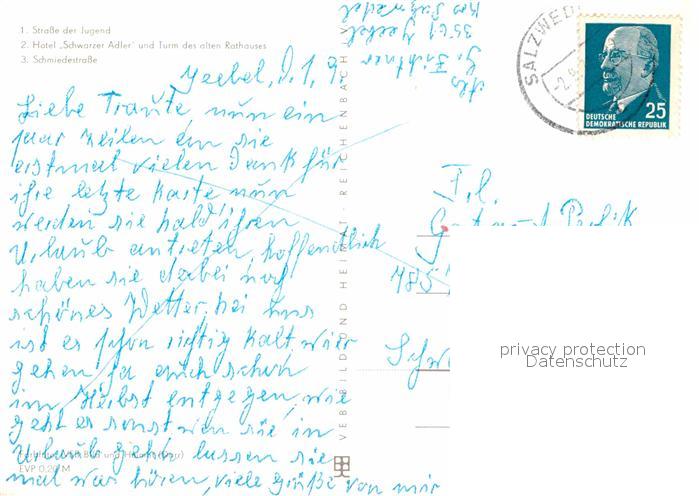 1. Straße der Jugend
2. Hotel „Schwarzer Adler" und Turm des alten Rathauses
3. Schmiedestraße
Jeebel, d. 1. 9.
Liebe Traute, nun ein
paar Zeilen an sie
erstmal vielen Dank für
ihre letzte Karte nun
werden sie bald ihren
Urlaub antreten, hoffendlich
haben sie dabei noch
schönes Wetter, bei uns
ist es schon richtig kalt wir
gehen ja auch schon
im Herbst entgegen, wie
geht es sonst wen sie in
Urlaub gehn lassen sie
mal was hören, viele Grüße von mir
EVP 0,20 M
VEB BILD UND HEIMAT REICHENBACH
Abs
G. Fichtner
3561 Jeebel
Kreis Salzwedel
SALZWEDEL
DEUTSCHE
DEMOKRATISCHE REPUBLIK
25
Frl.
485
Schw
privacy protection
Datenschutz